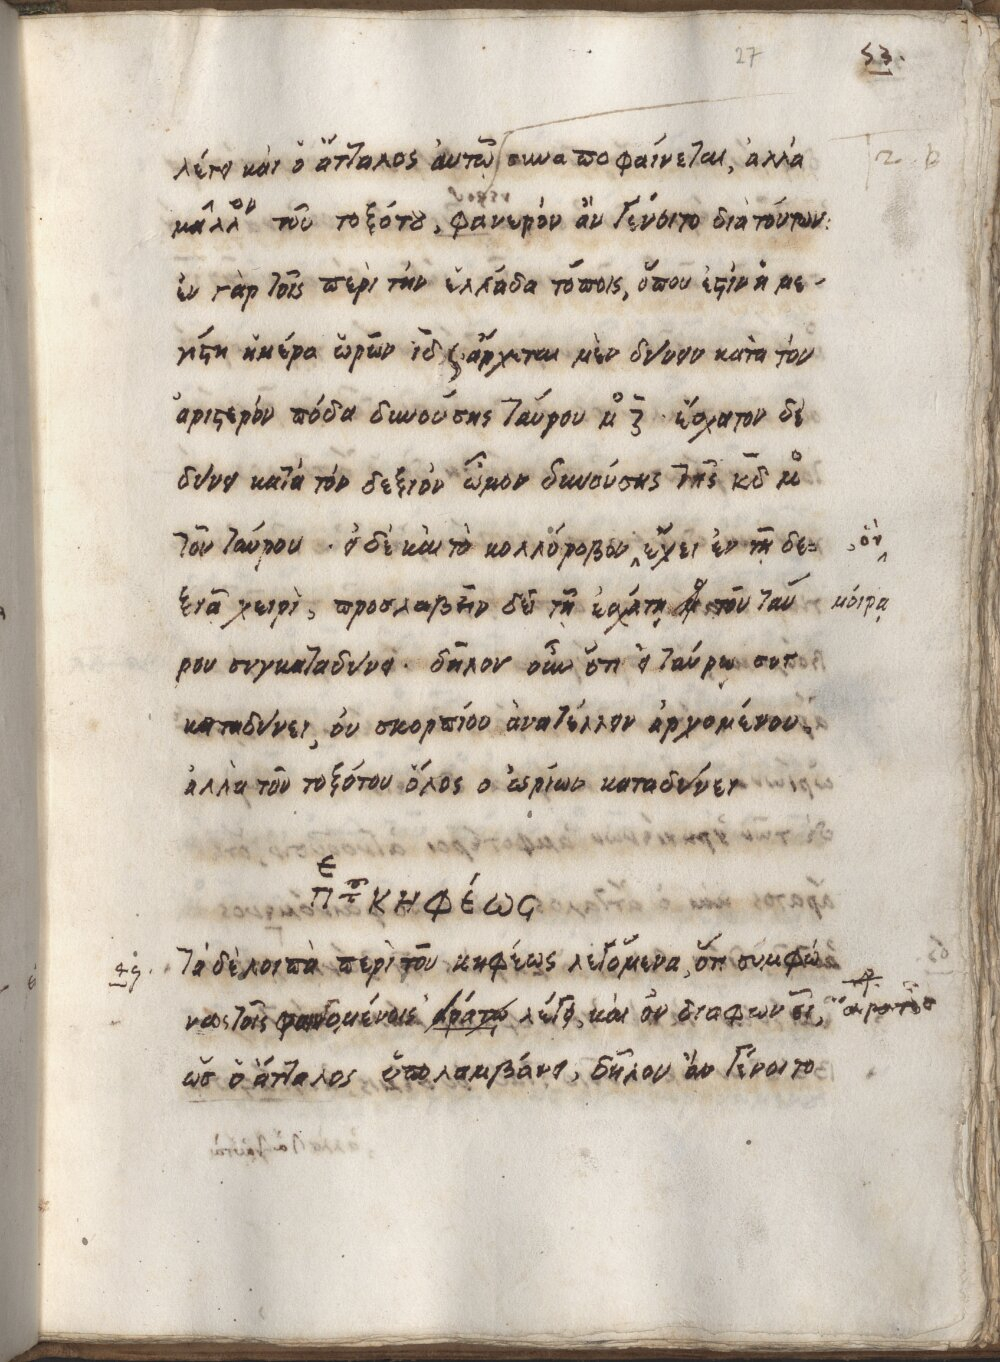 27 53.
λέγει καὶ ὁ ἄτταλος αὐτῷ συναποφαίνεται, ἀλλὰ
μᾶλλον τοῦ τοξότου, φανερὸν ἂν γένοιτο διὰ τούτων:
ἐν γὰρ τοῖς περὶ τὴν ἑλλάδα τόποις, ὅπου ἐστὶν ἡ με-
γίστη ἡμέρα ὡρῶν ιδ ἄρχεται μὲν δύνειν κατὰ τὸν
ἀριστερὸν πόδα δυνούσης ταύρου μο̄ ζ̄ · ἔσχατον δὲ
δύνει κατὰ τὸν δεξιὸν ὦμον δυνούσης τῆς κδ̄ μο̄
τοῦ ταύρου · εἰ δὲ καὶ τὸ κολλόροβον, ἔχει ἐν τῇ δε- ὃν
ξιᾷ χειρὶ, προσλαβεῖν δεῖ τῇ ἐσχάτῃ τοῦ ταύ μοίρᾳ
ρου συγκαταδύνει · δῆλον οὖν ὅτι εἰ ταύρῳ συγ
καταδύνει, οὐ σκορπίου ἀνατέλλον ἀρχομένου,
ἀλλὰ τοῦ τοξότου ὅλος ο ὠρίων καταδύνει
Περὶ ΚΗΦΈΩς
Τὰ δὲ λοιπὰ περὶ τοῦ κηφέως λεγόμενα, ὅτι συμφώ
νως τοῖς φαινομένοις ἀράτῳ λέγει, καὶ οὐ διαφωνεῖ, ἄρατος
ὡς ὁ ἄτταλος ὑπολαμβάνει, δῆλον ἂν γένοιτο